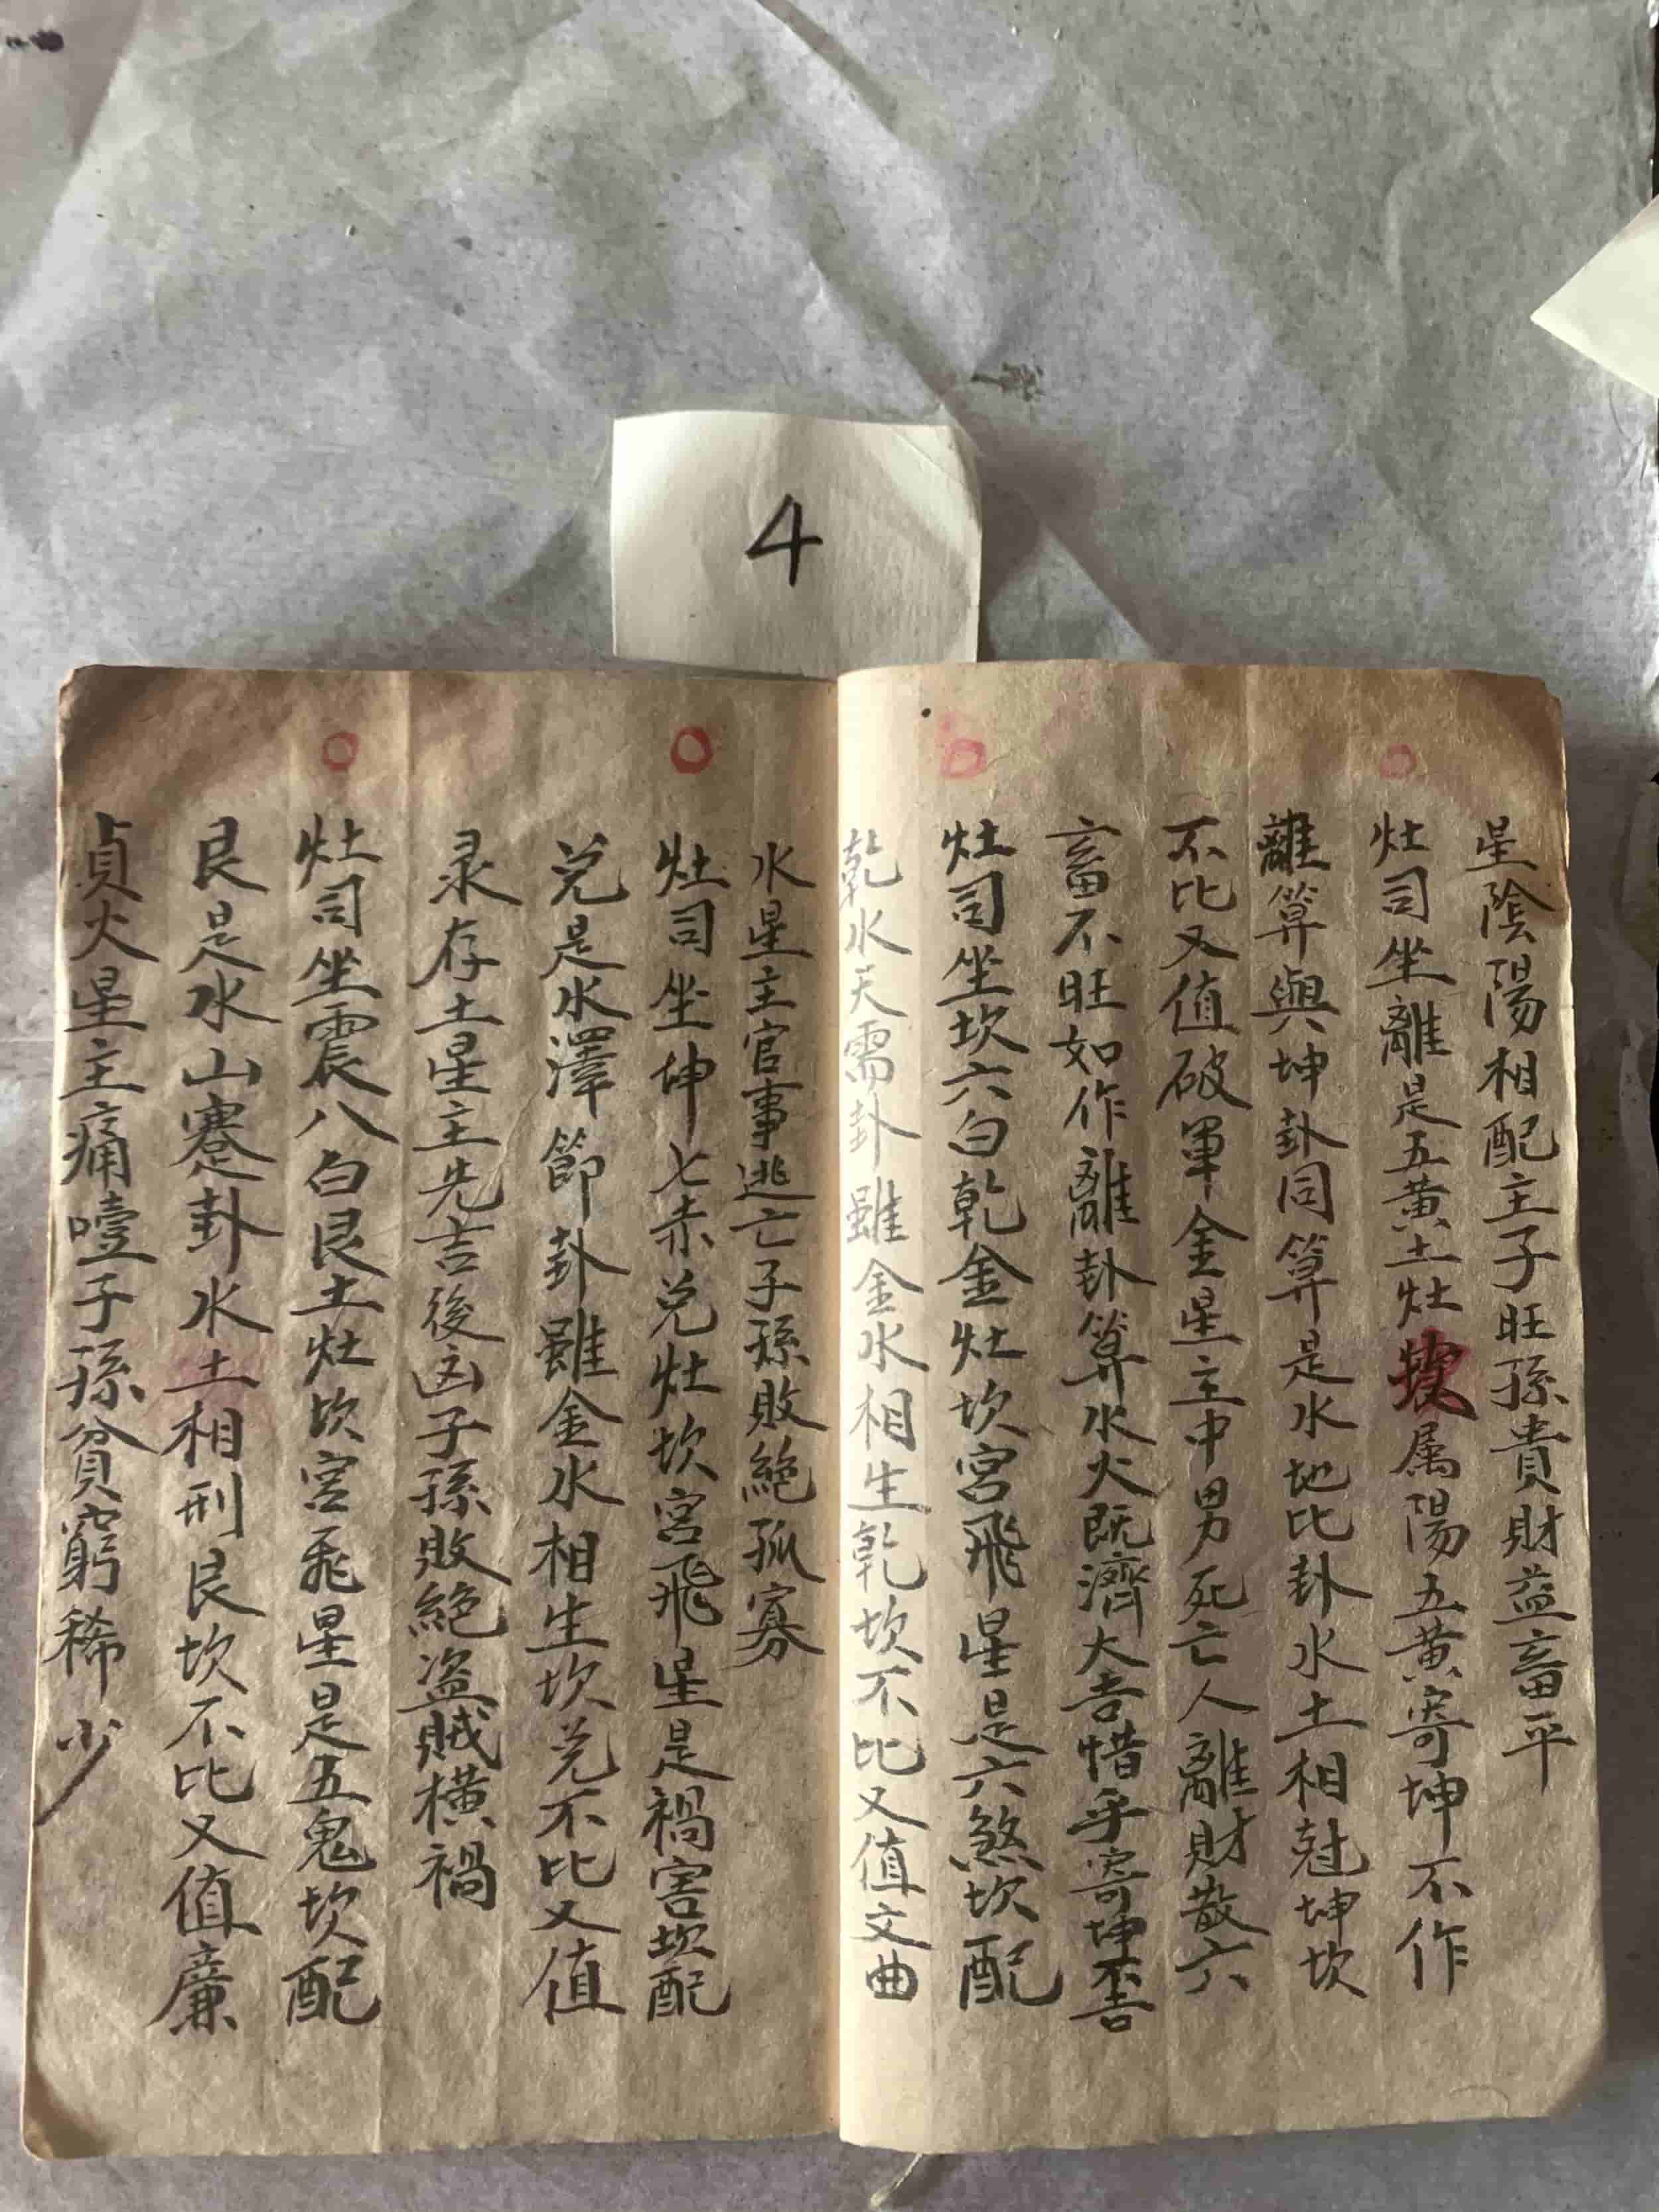 4
星陰陽相配主子旺孫貴財益畜平
灶司坐離是五黃土灶坎属陽五黃寄坤不作
離算與坤卦同算是水地比卦水土相尅坤坎
不比又值破軍金星主中男死亡人離財散六
畜不旺如作離卦算水火既濟大吉惜乎寄坤不吉
灶司坐坎六白乾金灶坎宮飛星是六煞坎配
乾水天需卦雖金水相生乾坎不比又值文曲
水星主官事逃亡子孫敗絕孤寡
灶司坐坤七赤兑灶坎宮飛星是禍害坎配
兑是水澤節卦雖金水相生坎兑不比又值
录存土星主先吉後凶子孫敗絕盗賊橫禍
灶司坐震八白艮土灶坎宮飛星是五鬼坎配
艮是水山蹇卦水土相刑艮坎不比又值廉
貞火星主痛噎子孫貧窮稀少